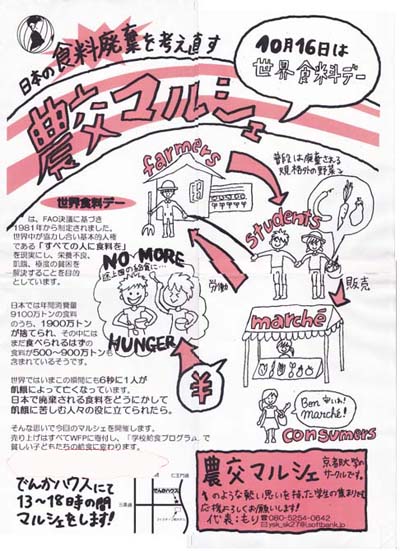 日本の食料廃棄を考え直す
10月16日は
世界食料デー
農交マルシェ
farmers
普段は廃棄される
規格外の野菜を
世界食料デー
は、FAO決議に基づき
1981年から制定されました。
世界中が協力し合い基本的人権
である「すべての人に食料を」
を現実にし、栄養不良、
飢餓、極度の貧困を
解決することを目的
としています。
students
NO MORE
途上国の給食に…
HUNGER
労働
販売
marché
日本では年間消費量
9100万トンの食料
のうち、1900万トン
が捨てられ、その中には
まだ食べられるはずの
食料が500~900万トンも
含まれているそうです。
¥
marché!
consumers
世界ではいまこの瞬間にも6秒に1人が
飢餓によって亡くなっています。
日本で廃棄される食料をどうにかして
飢餓に苦しむ人々の役に立てられたら。
そんな思いで今回のマルシェを開催します。
売り上げはすべてWFPに寄付し、「学校給食プログラム」で
貧しい子どもたちの給食に変わります。
でんかハウスにて
13~18時の間
マルシェをします!
仁王門通
三条通
でんかハウス
農交マルシェ
京都大学の
サークルです。
代表:もり ☎080-5254-0642